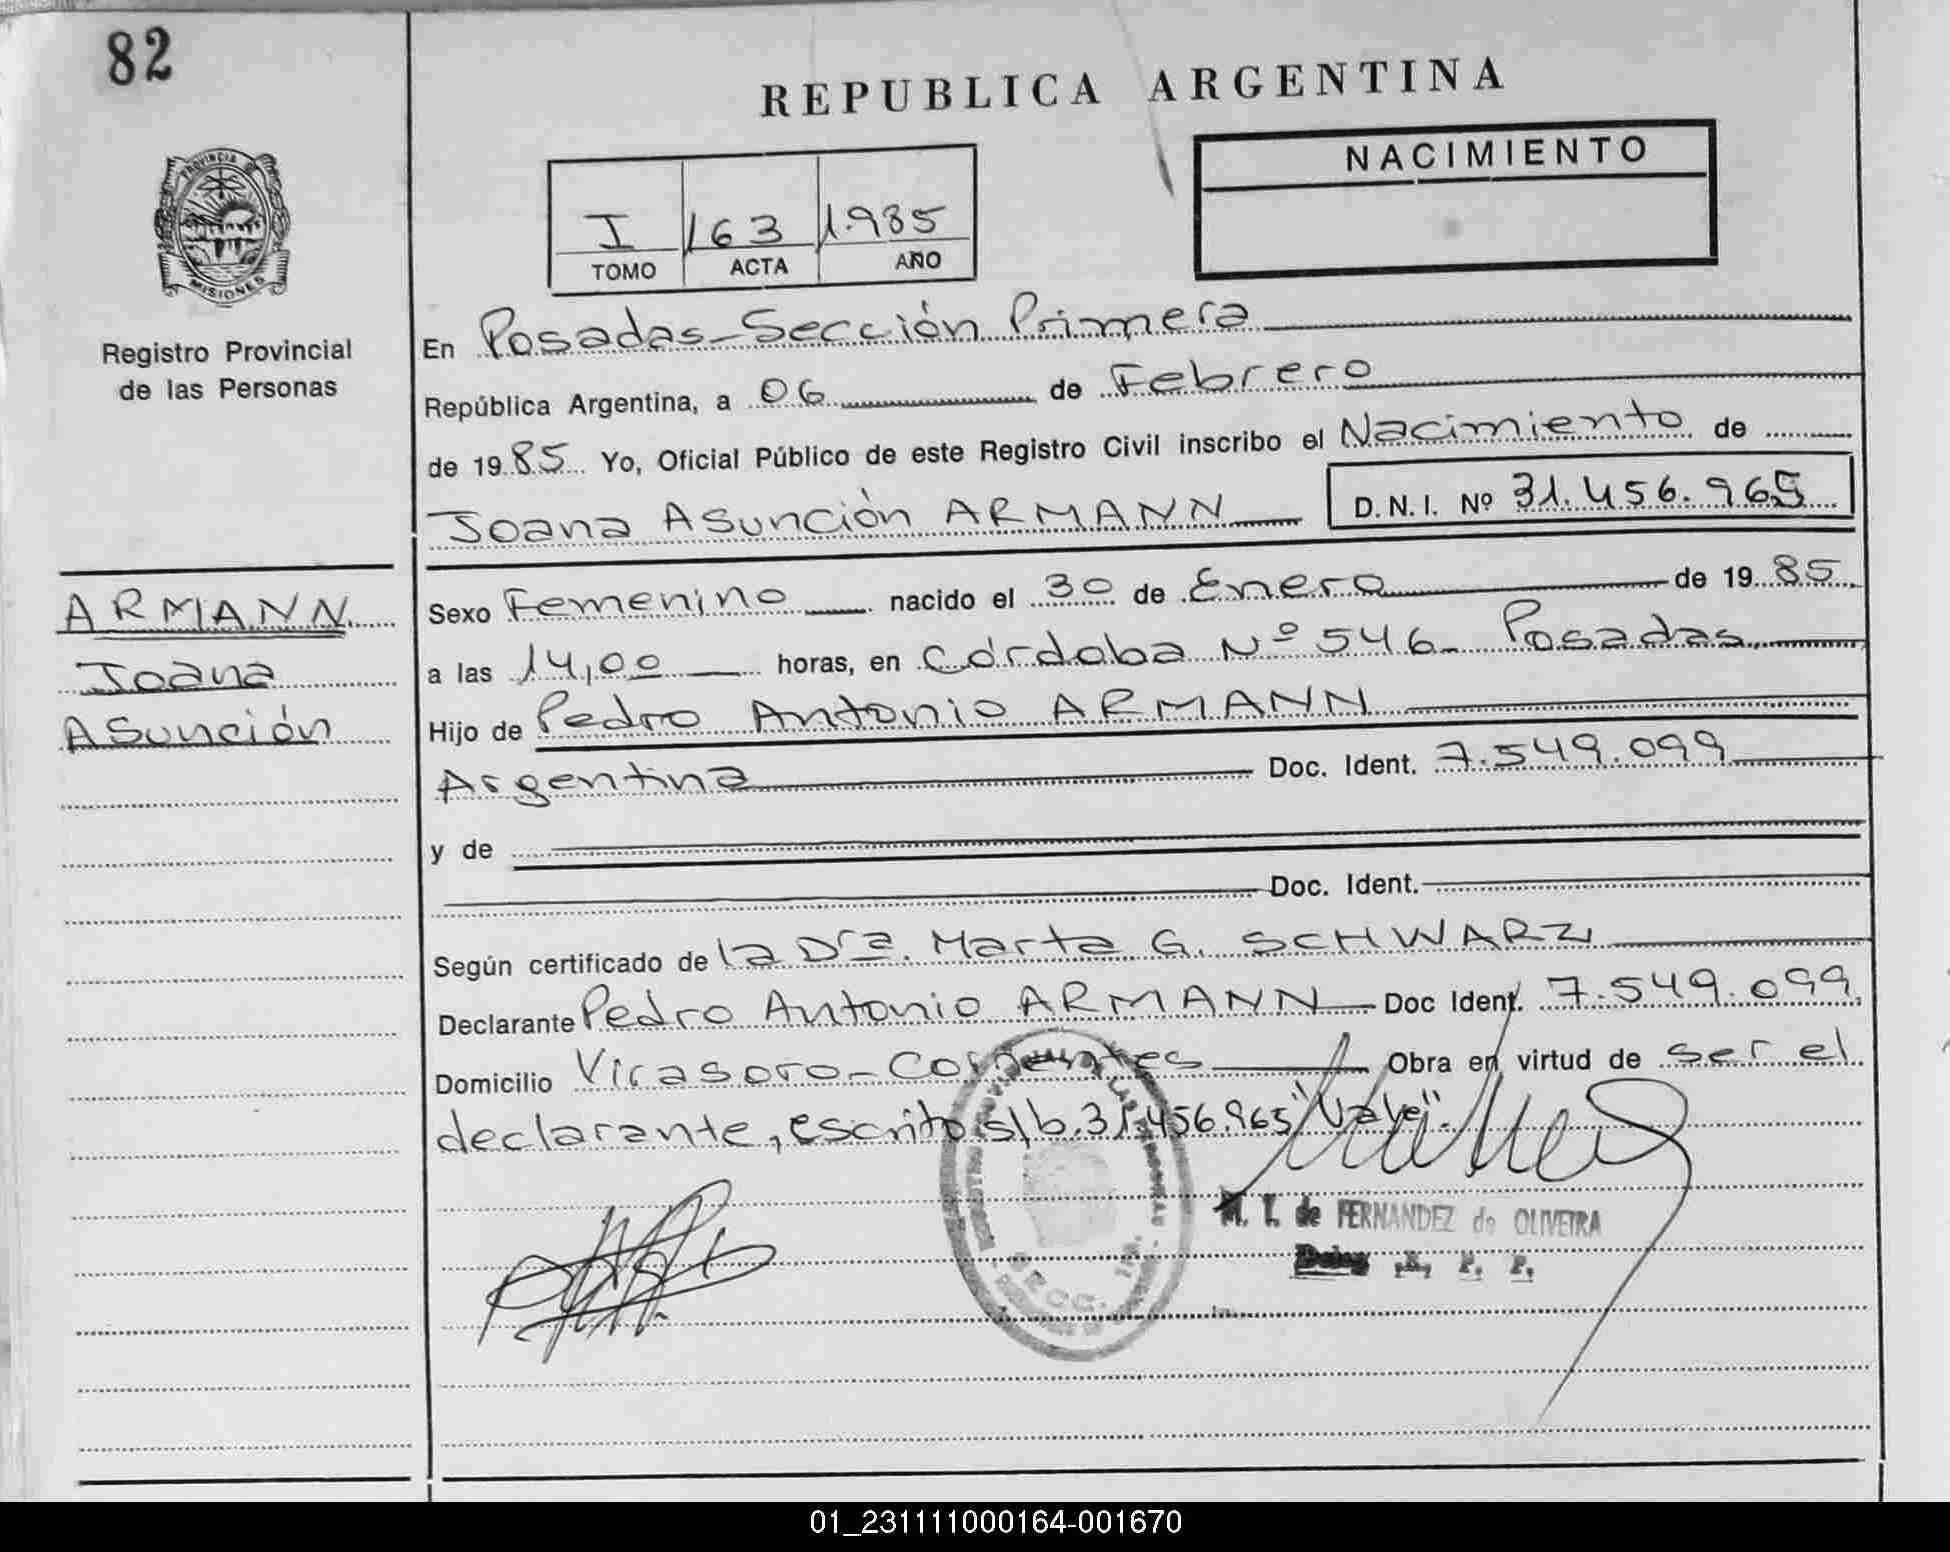 82
REPUBLICA ARGENTINA
PROVINCIA DE
MISIONES
NACIMIENTO
I 163 1.985
TOMO ACTA AÑO
Registro Provincial
de las Personas
En Posadas-Sección Primera
República Argentina, a 06 de Febrero
de 19 85 Yo, Oficial Público de este Registro Civil inscribo el Nacimiento de
Joana Asunción ARMANN D.N.I. Nº 31.456.965
ARMANN
Joana
Asunción
Sexo Femenino nacido el 30 de Enero de 19 85
a las 14,00 horas, en Córdoba Nº 546- Posadas
Hijo de Pedro Antonio ARMANN
Argentina Doc. Ident. 7.549.099
y de
Doc. Ident.
Según certificado de la Dra. Marta G. SCHWARZ
Declarante Pedro Antonio ARMANN Doc Ident. 7.549.099
Domicilio Virasoro-Corrientes Obra en virtud de ser el
declarante, escrito s/b.31.456.965 "Vale".
M. T. de FERNANDEZ de OLIVEIRA
Deleg. R. P. P.
01_231111000164-001670